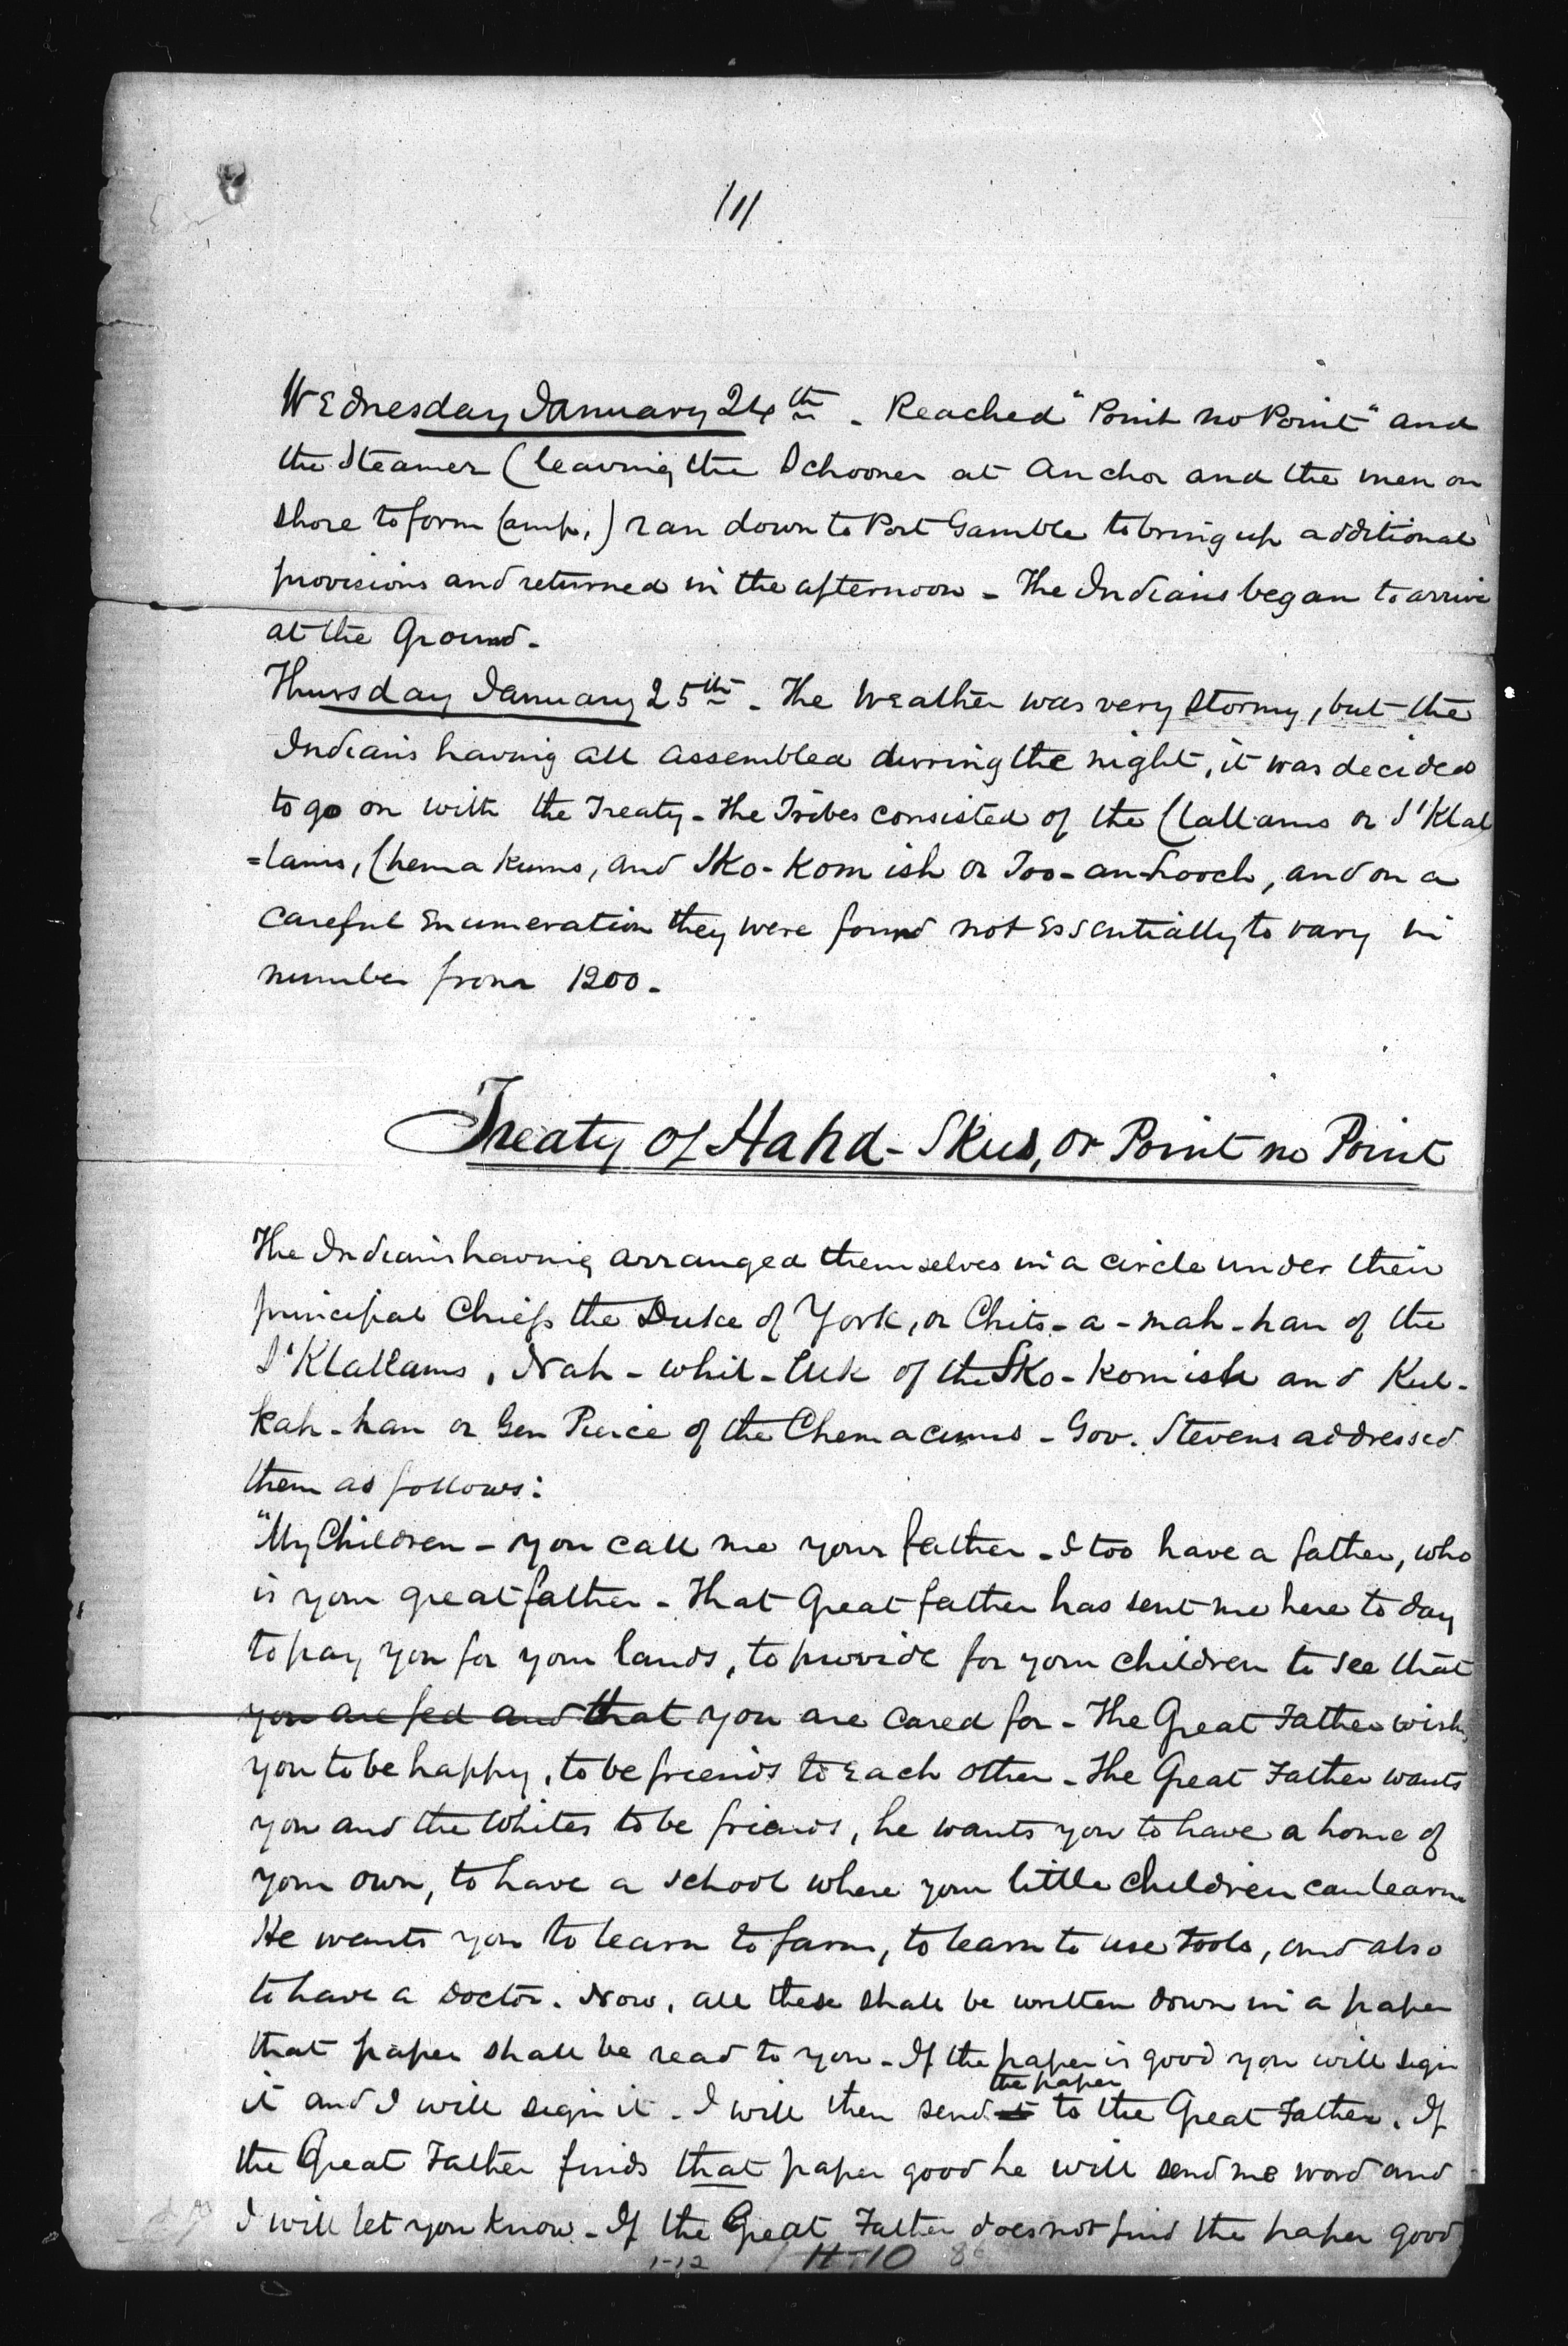 11
Wednesday January 24th - Reached "Point no Point" and
the Steamer (leaving the Schooner at anchor and the men on
shore to form Camp,) ran down to Port Gamble to bring up additional
provisions and returned in the afternoon - The Indians began to arrive
at the Ground -
Thursday January 25th - The Weather was very stormy, but the
Indians having all assembled durring the night, it was decided
to go on with the Treaty - The Tribes consisted of the Clallams or S'Klal
=lams, Chemakums, and Sko-komish or Too-an-hooch, and on a
careful enumeration they were found not essentially to vary in
number from 1200 -
Treaty of Hahd-Skus, or Point no Point
The Indians having arranged themselves in a circle under their
principal Chiefs the Duke of York, or Chits-a-mah-han of the
S'Klallams, Nah-whil-luk of the Sko-komish and Kul-
kah-han or Gen Pierce of the Chemacums - Gov. Stevens addressed
them as follows:
"My Children - you call me your father - I too have a father, who
is your great father - That Great father has sent me here to day
to pay you for your lands, to provide for your children to see that
you are fed and that you are cared for - The Great Father wishes
you to be happy, to be friends to each other - The Great Father wants
you and the Whites to be friends, he wants you to have a home of
your own, to have a school where your little children can learn.
He wants you to learn to farm, to learn to use tools, and also
to have a Doctor. Now, all these shall be written down in a paper
that paper shall be read to you - If the paper is good you will sign
it and I will sign it - I will then send the paper to the Great Father. If
the Great Father finds that paper good he will send me word and
I will let you know - If the Great Father does not find the paper good
1-12 H-10